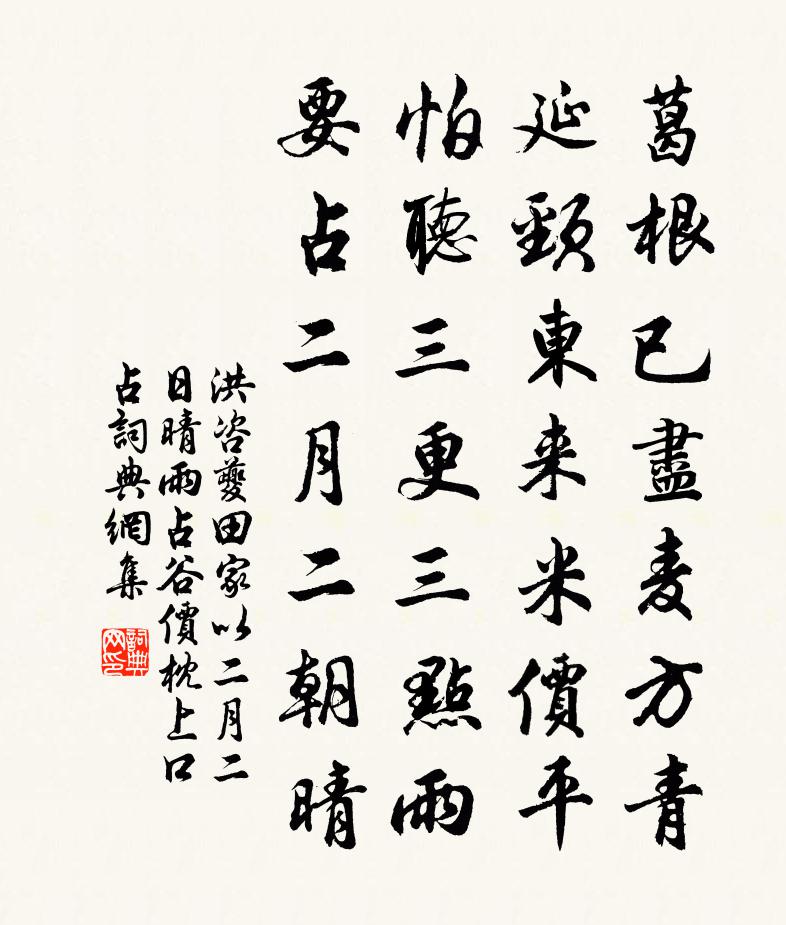 葛根已盡麦方青
延頸東来米價平
怕聽三更三點雨
要占二月二朝晴
洪咨夔田家以二月二
日晴雨占谷價枕上口
占詞典網集
詞典网印